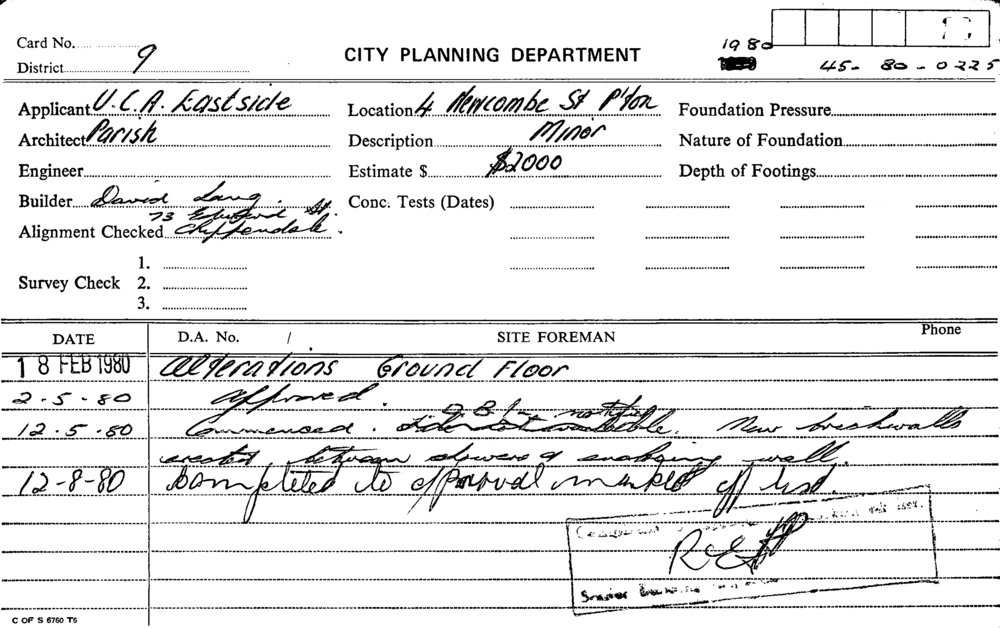 Card No.
District 9
CITY PLANNING DEPARTMENT
1980
45- 80-0225
Applicant U.C.A. Eastside
Location 4 Newcombe St P'ton
Foundation Pressure
Architect Parish
Description Minor
Nature of Foundation
Engineer
Estimate $ $2000
Depth of Footings
Builder David Lang.
Conc. Tests (Dates)
73 Edward St.
Alignment Checked Chippendale.
1.
Survey Check 2.
3.
DATE
D.A. No. /
SITE FOREMAN
Phone
18 FEB 1980 Alterations Ground Floor
2-5-80 Approved.
12.5.80 Commenced. New brickwalls
erected between showers & enclosing wall.
12-8-80 Completed to approval marked off list.
C OF S 6760 T6